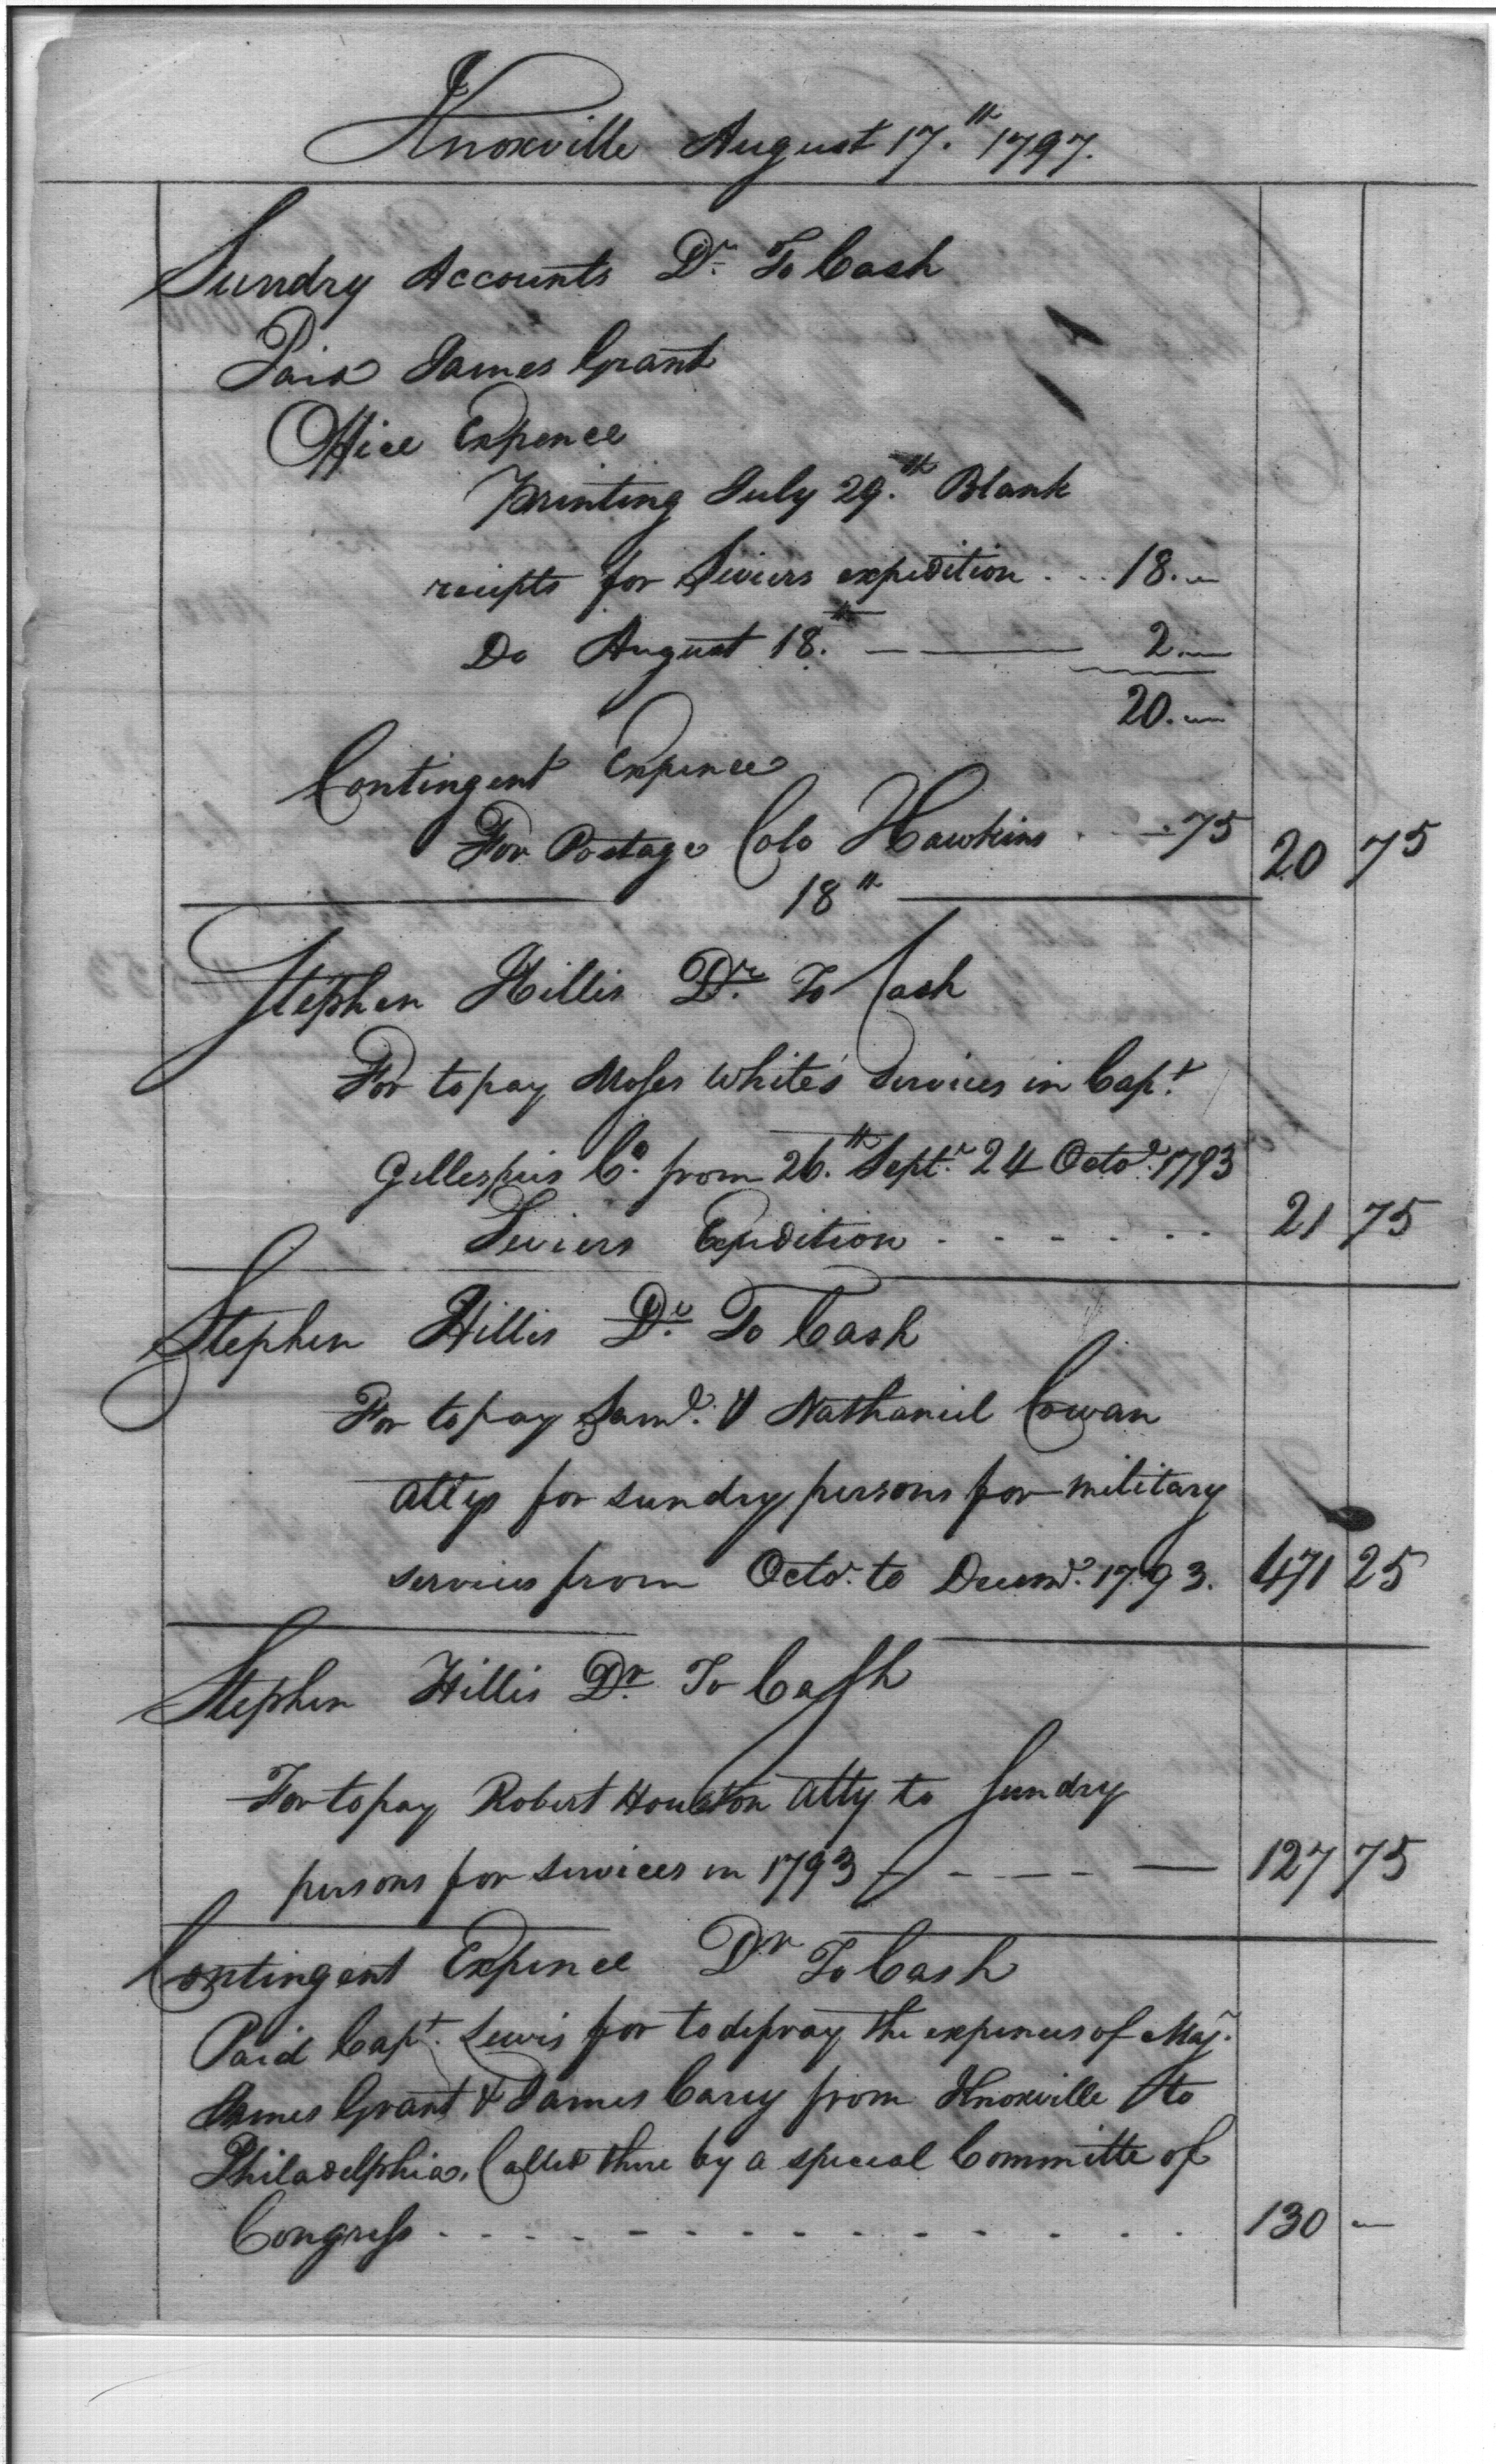 Knoxville August 17.th 1797.
Sundry Accounts Dr. To Cash
Paid James Grant
Office Expence
Printing July 29.th Blank
reciepts for Seviers expedition . . . 18. —
Do August 18.th — — 2. —
20. —
Contingent Expence
For Postage Colo Hawkins . — .75 20 75
18th
Stephen Hillis Dr. To Cash
For to pay Moses White's services in Capt.
Gillespies Co. from 26.th Septr. 24 Octor. 1793
Seviers Expedition . - . - . . . 21 75
Stephen Hillis Dr. To Cash
For to pay Saml. & Nathaniel Cowan
attys for sundry persons for military
services from Octor. to Decemr. 1793. 471 25
Stephen Hillis Dr. To Cash
For to pay Robert Houston atty to Sundry
persons for services in 1793 - - - - — 127 75
Contingent Expence Dr To Cash
Paid Capt. Lewis for to defray the expences of Majr.
James Grant & James Carey from Knoxville to
Philadelphia, Called there by a special Committe of
Congress - - - - - - - - - - - - 130 —